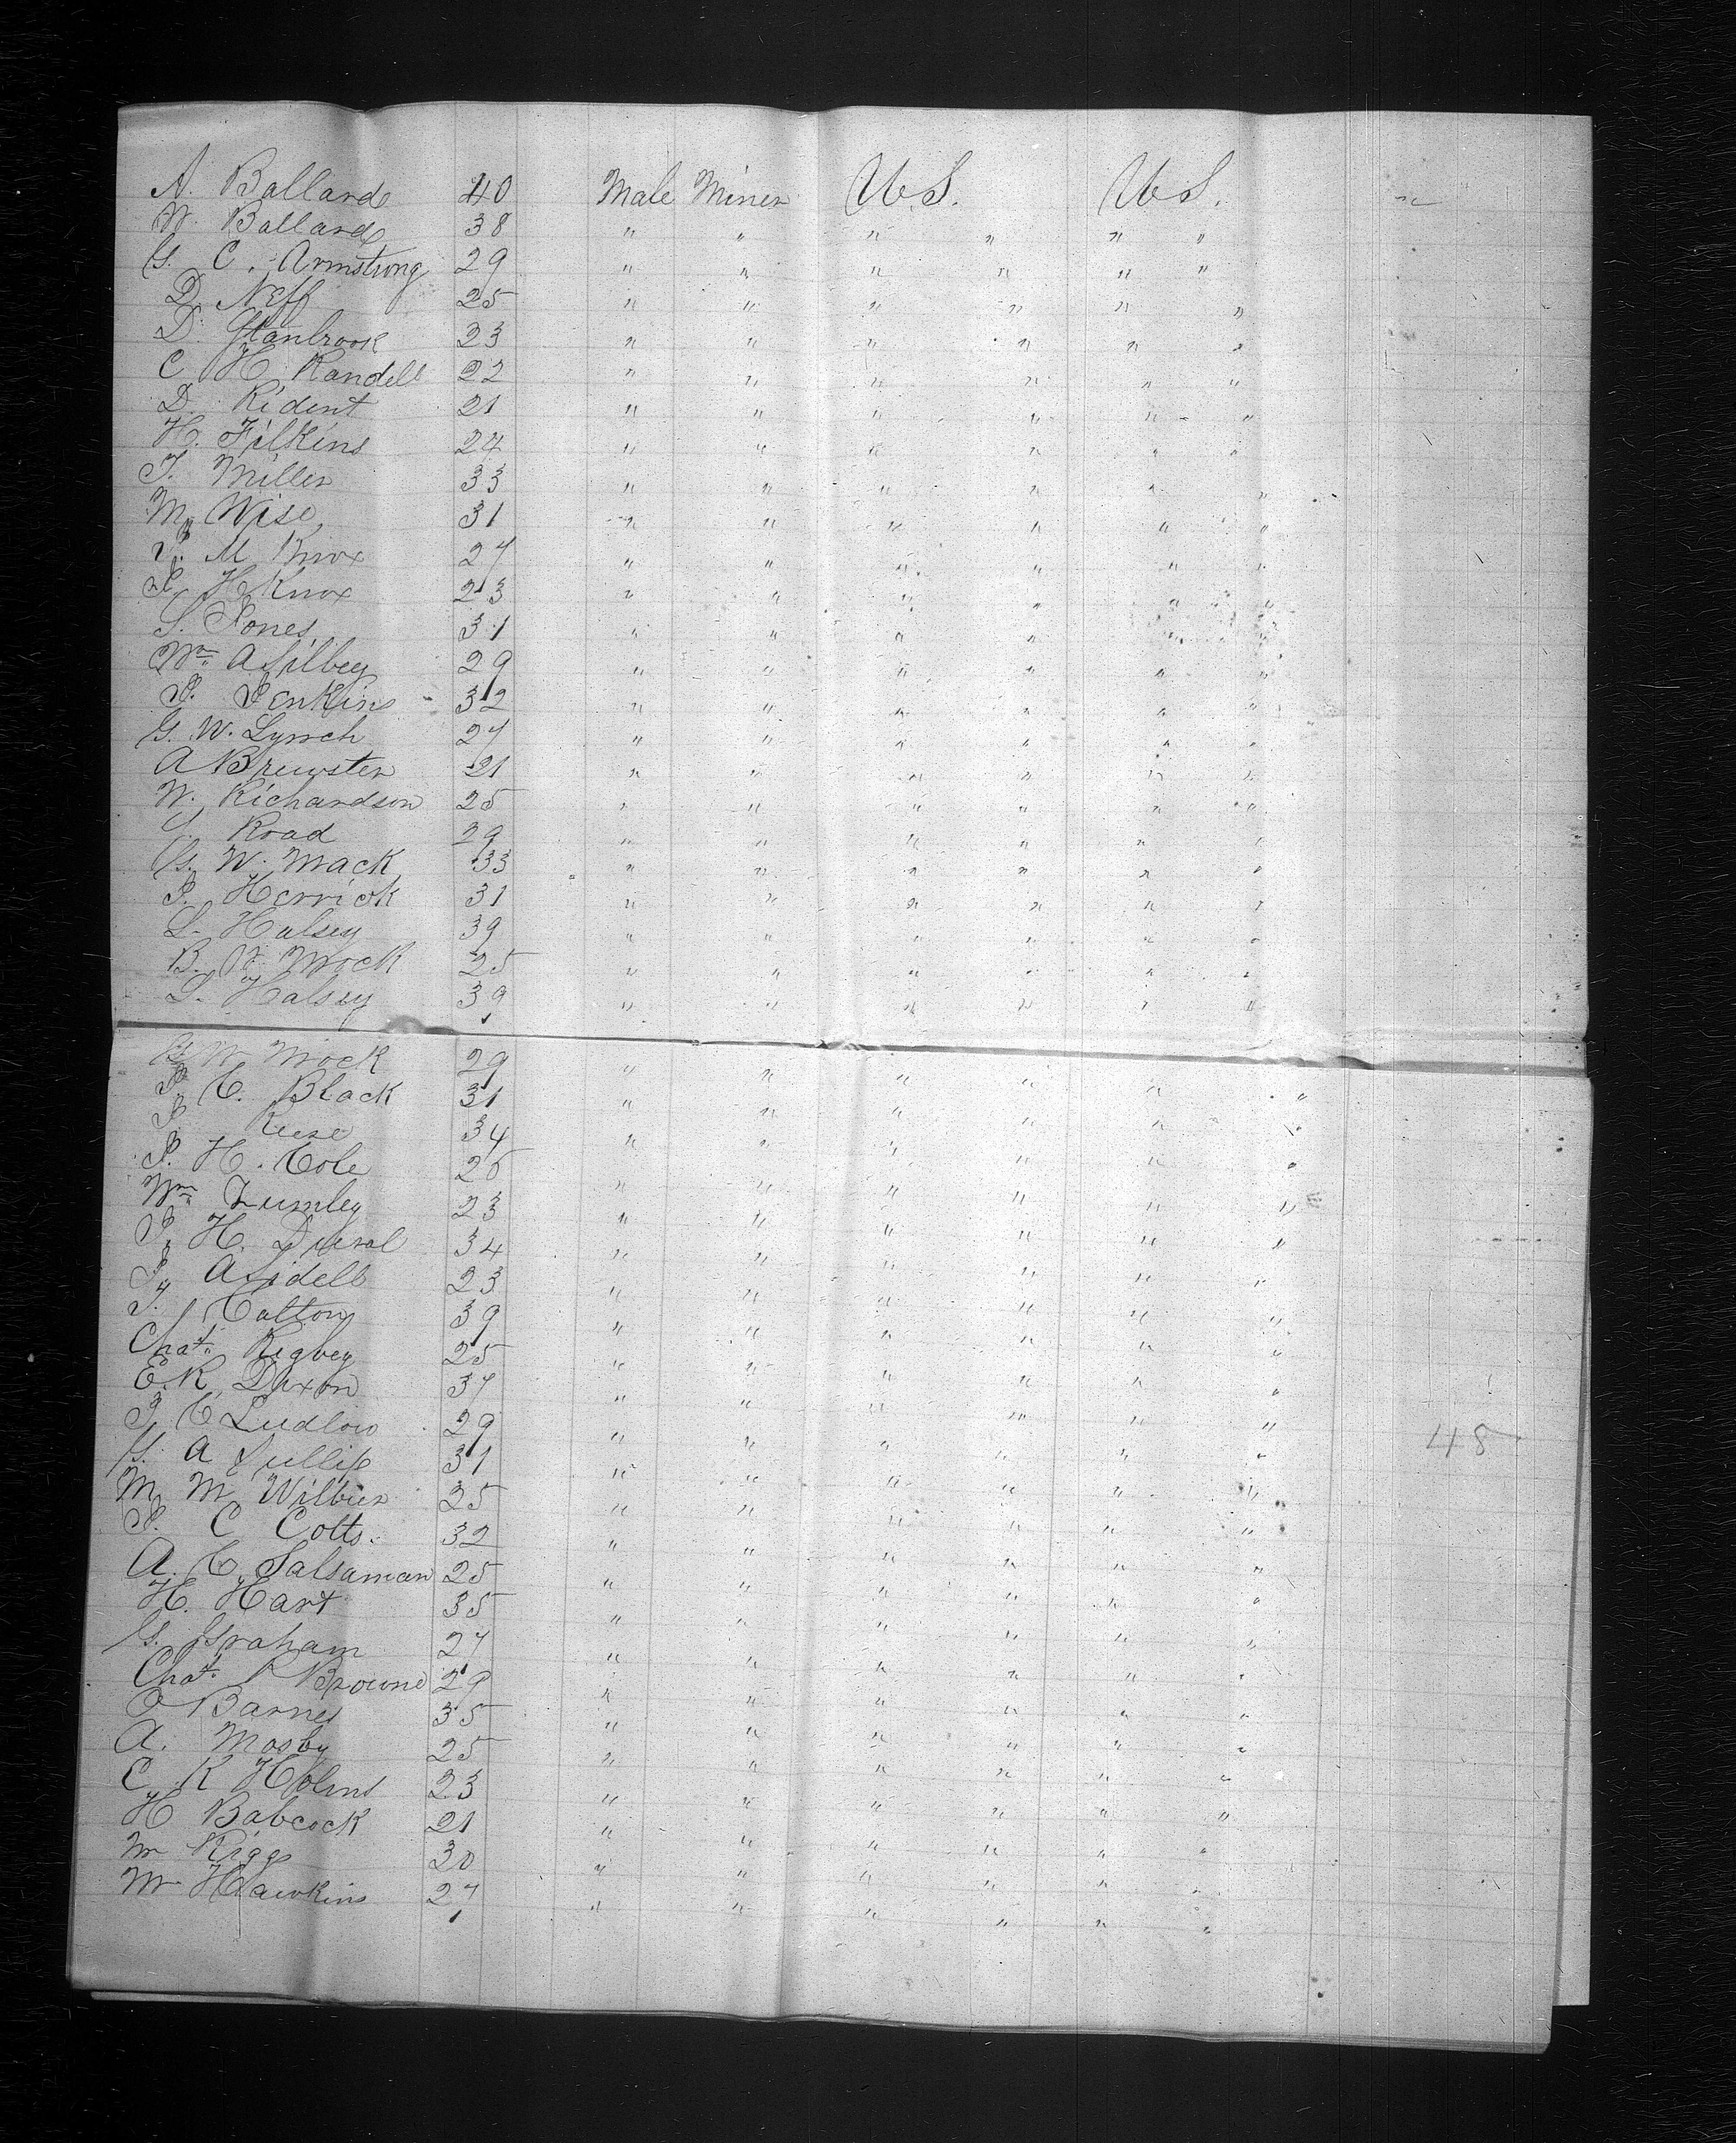 A. Ballard 40 Male Miner U S. U S.
W. Ballard 38 " " " " " "
G. C. Armstrong 29 " " " " " "
D. Neff 25 " " " " " "
D. Stanbrook 23 " " " " " "
C H. Randell 22 " " " " " "
D. Rident 21 " " " " " "
H. Filkins 24 " " " " " "
T. Miller 33 " " " " " "
M. Wise 31 " " " " " "
M Knox 27 " " " " " "
H Knox 23 " " " " " "
S. Jones 31 " " " " " "
Wm. A Silbey 29 " " " " " "
J. Jenkins 32 " " " " " "
G. W. Lynch 27 " " " " " "
A Brewster 21 " " " " " "
W. Richardson 25 " " " " " "
Road 29 " " " " " "
G. W. Mack 33 " " " " " "
J. Herrick 31 " " " " " "
L. Halsey 39 " " " " " "
B. W. Mock 25 " " " " " "
L. Halsey 39 " " " " " "
W Mock 29 " " " " " "
J. C. Black 31 " " " " " "
J. 34 " " " " " "
J. H. Cole 25 " " " " " "
Wm. Lumley 23 " " " " " "
J. H. Duval 34 " " " " " "
J. A Sidell 23 " " " " " "
T. Colton 39 " " " " " "
Chas. Rigbey 25 " " " " " "
E. R. Dixon 37 " " " " " "
J. C Ludlow 29 " " " " " "
G. A 31 " " " " " " 48
M. M. Wilbur 25 " " " " " "
J. C Colts. 32 " " " " " "
A. C. Salsaman 25 " " " " " "
H. Hart 35 " " " " " "
G. Graham 27 " " " " " "
Chas. Browne 29 " " " " " "
O Barnes 35 " " " " " "
A. Mosby 25 " " " " " "
C. K Holms 23 " " " " " "
H Babcock 21 " " " " " "
M Rigg 30 " " " " " "
M Hawkins 27 " " " " " "